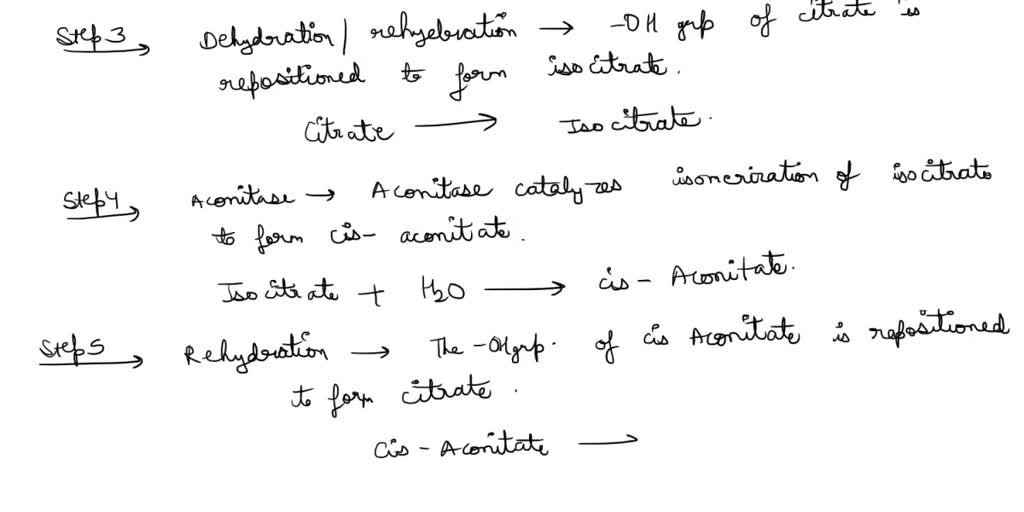 Step 3 Dehydration / rehyebration → -OH grp of citrate is
repositioned to form isocitrate.
Citrate → Isocitrate.
Step 4 Aconitase → Aconitase catalyzes isomerization of isocitrate
to form cis- aconitiate.
Isocitrate + H2O → cis - Aconitate.
Step 5 Rehydration → The -OH grp. of cis Aconitate is repositioned
to form citrate.
Cis - Aconitate →